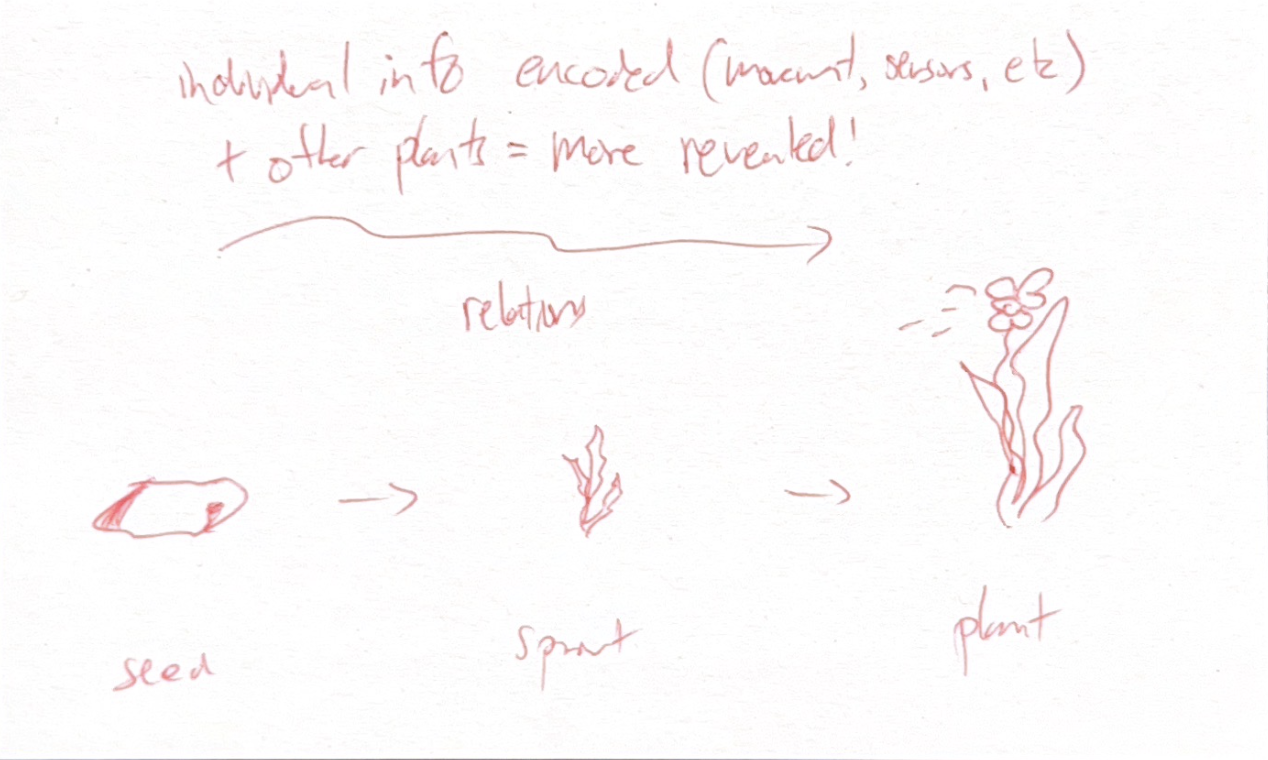 individual info encoded (movement, sensors, etc)
+ other plants = more revealed!
relations
seed
sprout
plant